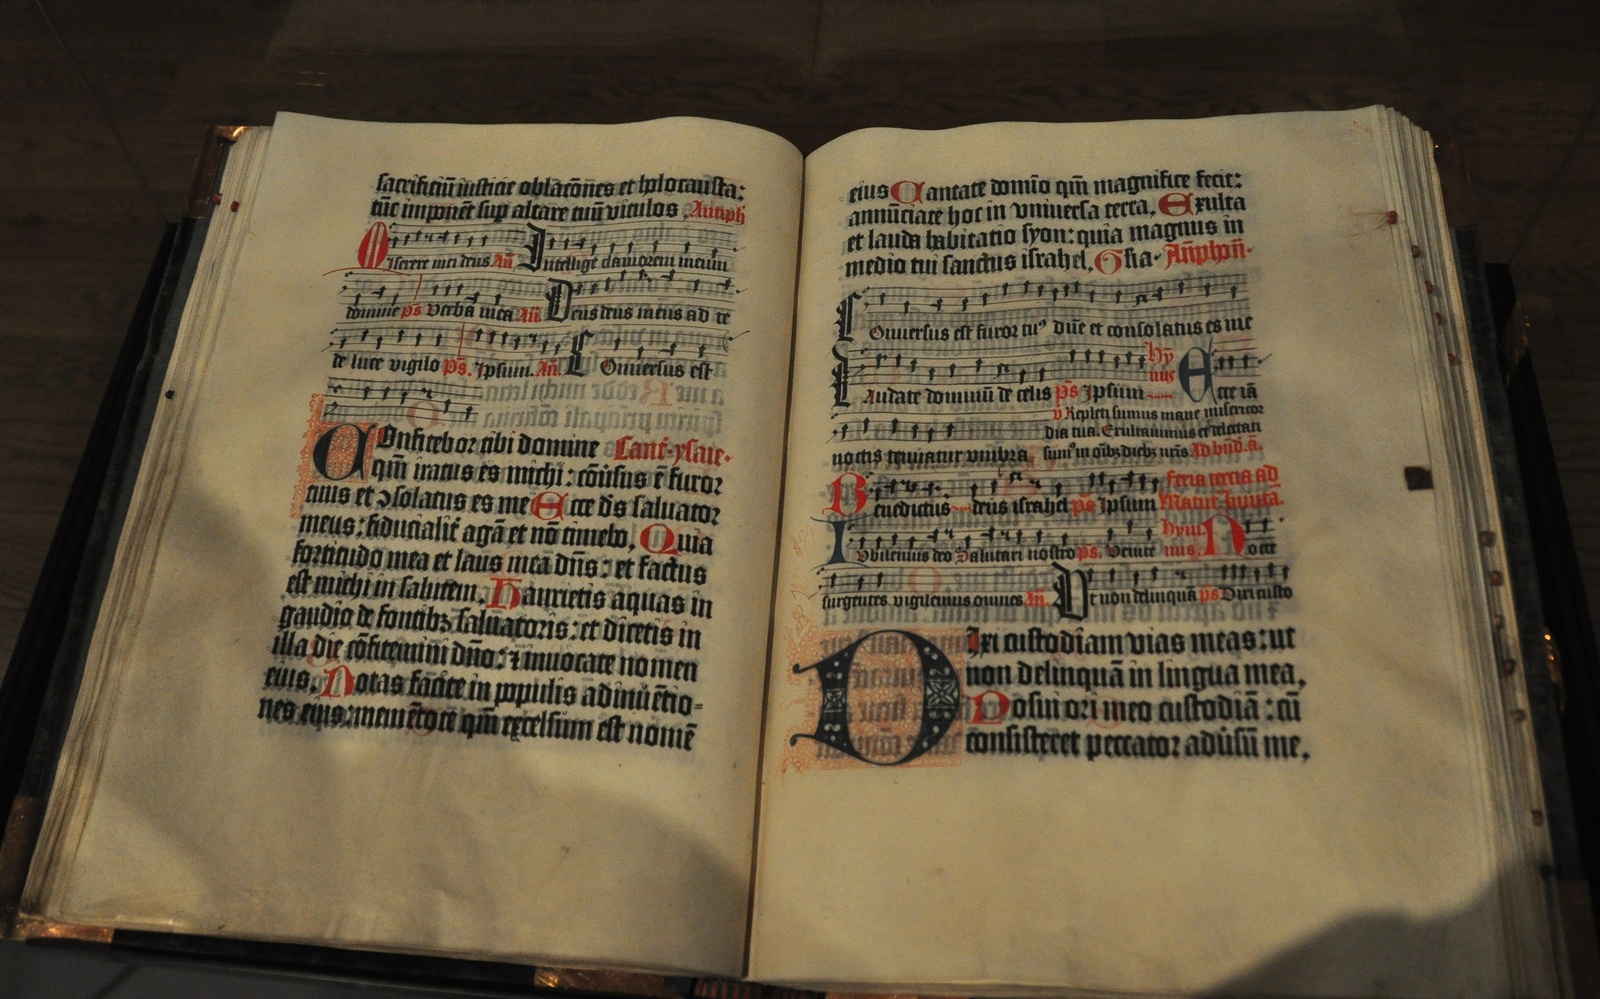 sacrificiū iusticie oblacōnes et holocausta:
tūc imponēt sup altare tuū vitulos Antiph
Miserere mei deus An̄ Intellige clamorem meum
domine ps Verba mea An̄ Deus deus meus ad te
de luce vigilo ps. Ipsum. An̄ Conversus est
Confitebor tibi domine Cant. ysaie.
qm̄ iratus es michi: cōūsus ē furor
tuus et ɔsolatus es me Ecce ds̄ saluator
meus: fiducialit̄ agā et nō timebo, Quia
fortitudo mea et laus mea dn̄s: et factus
est michi in salutem. Haurietis aquas in
gaudio de fontibꝫ saluatoris: et dicetis in
illa die cōfitemini dn̄o: ⁊ inuocate nomen
eius. Notas facite in populis adinuētio=
nes eius: mementote qm̄ excelsum est nomē
eius Cantate domīo qm̄ magnifice fecit:
annūciate hoc in vniuersa terra, Exulta
et lauda habitatio syon: quia magnus in
medio tui sanctus israhel, Gl̄ia. An̄phon̄.
Conuersus est furor tuꝰ dn̄e et consolatus es me
Laudate dominū de celis ps Ipsum hy
mus Ecce iā
v Repleti sumus mane misericor
dia tua. Exultauimus et delectati
noctis tenuatur vmbra sumꝰ in oībꝫ diebꝫ nr̄is Ad bn̄d. a.
Benedictus deus israhel ps Ipsum Feria tercia ad
Matut. Inuita.
Iubilemus deo Salutari nostro ps. Venite hym
nus. Nocte
surgentes vigilemus omnes An̄. Vt non delinquā ps Dixi custo
DIxi custodiam vias meas: ut
non delinquā in lingua mea,
Posui ori meo custodiā: cū
consisteret peccator aduīsū me,